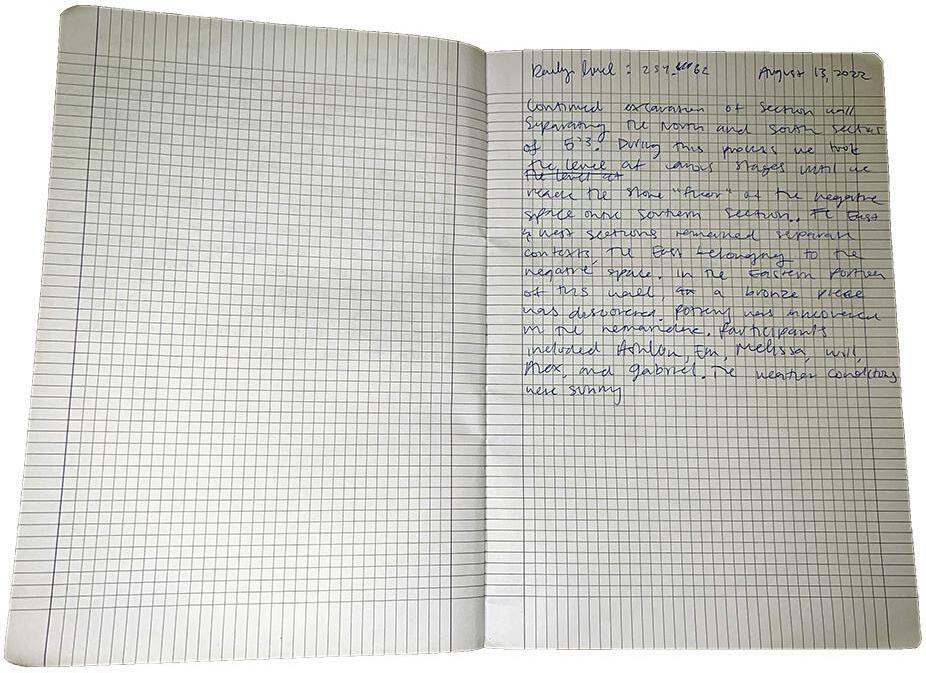 Daily level : 257. 62 August 13, 2022
Continued excavation of section wall
Separating the North and South sections
of 5³3. During this process we took
the level at various stages until we
the level at
reache the stone "floor" of the negative
space on the Southern section. The East
& West sections remained separate
contexts, the East belonging to the
negative space. In the Eastern portion
of this wall, a bronze piece
was discovered. Pottery was uncovered
in the remainder. Participants
included Ashlyn, Em, Melissa, Will,
Alex, and Gabriel. The weather conditions
were sunny